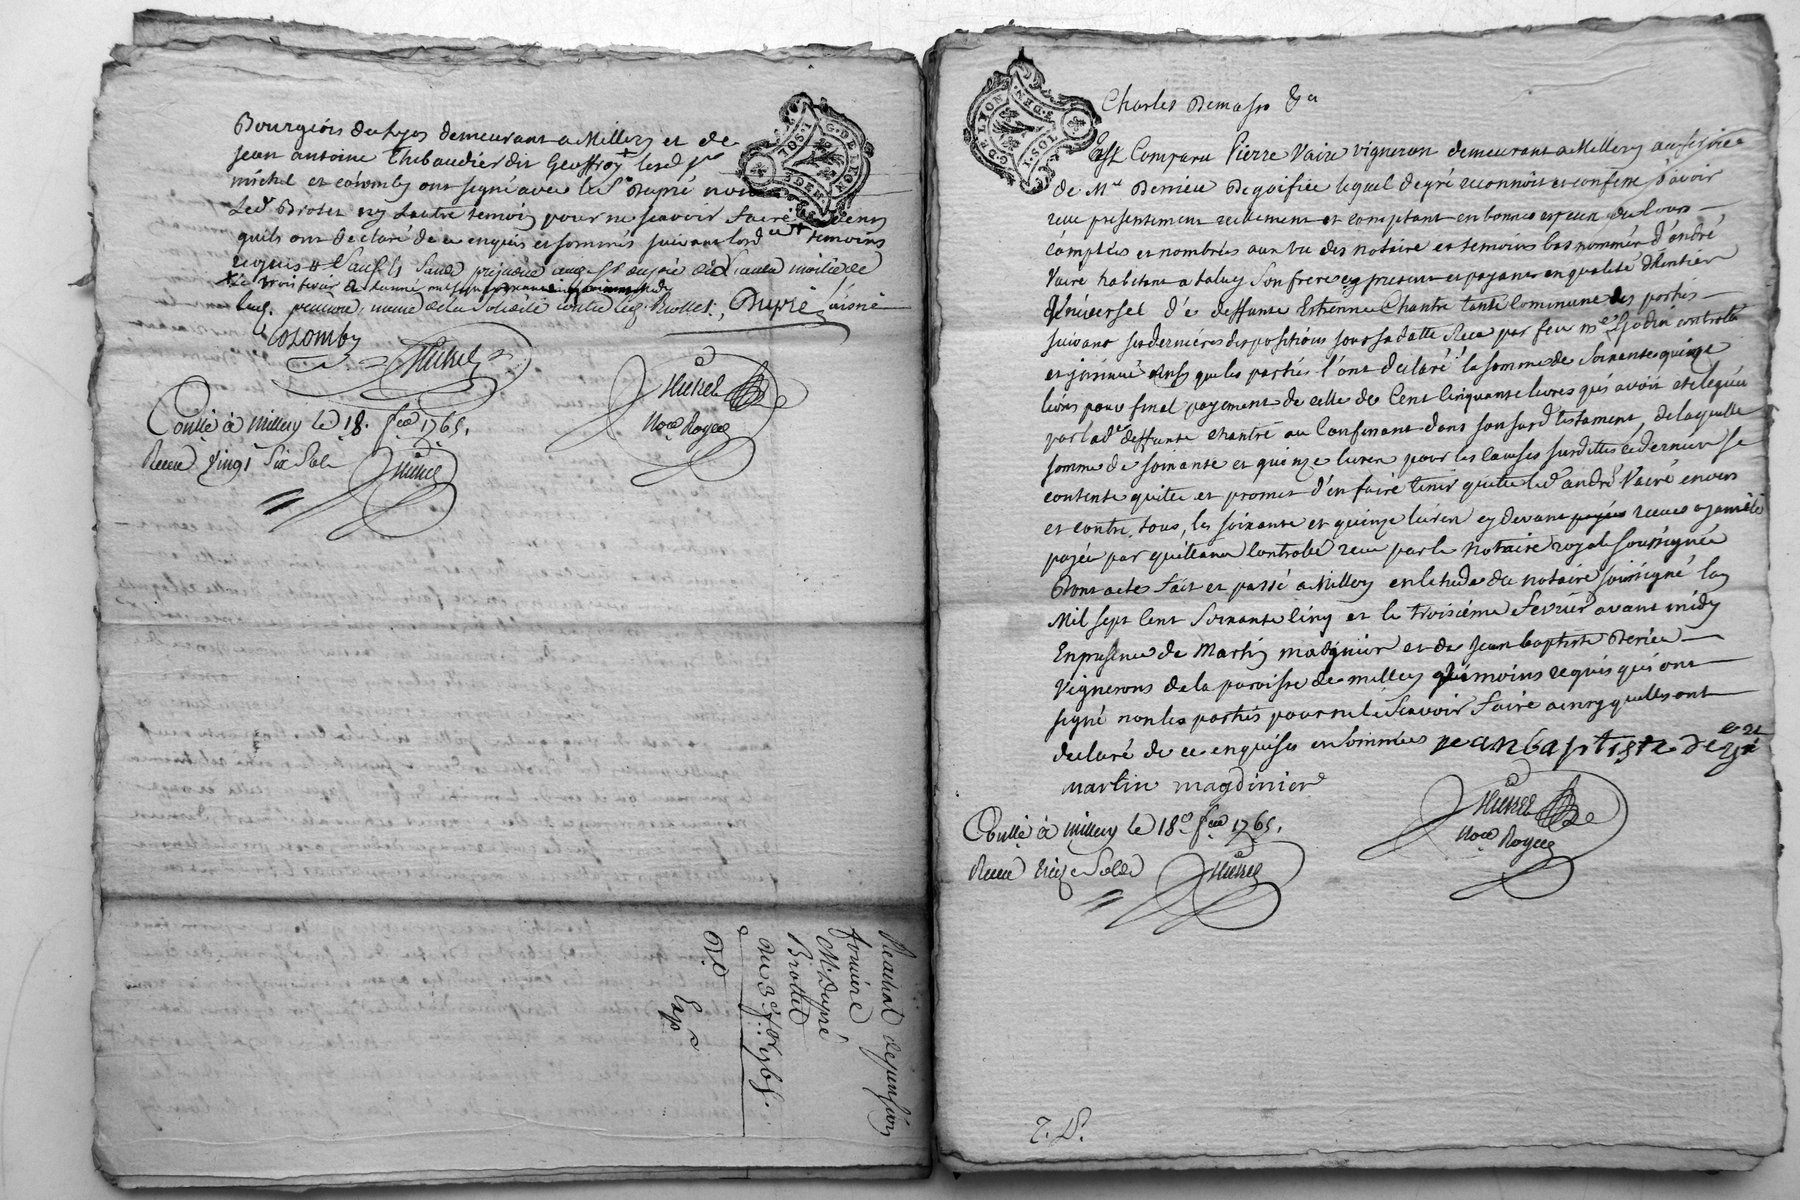 Bourgeois du lieu demeurant a Millery et de
jean antoine Thibaudier dit Geoffroy lesd. Srs
michel et Colomby ont signé avec le Sr. Dupré non
Led. Brotet ny Lautre temoin pour ne sçavoir faire
quils ont declaré de ce enquis et sommés suivant lord. temoins
requis Sauf et Sans prejudice aud. Sr dupré de Lautre moitié de
Dupré Laisné
Colomby
Thieret
Thieret
Nore. Royal
Conllé à Millery le 18. feer 1765.
Receu vingt Six Sols
Thieret
G. DE LYON
2 SOLS. 1 DEN.
du 3e. fer. 1765.
Brottet
Mr. Dupré
fonciere
Rachat de pension
Exp.
G. DE LION
1 SOL. 1 DEN.
Charles Demasso &a
Est Comparu Pierre Vaire vigneron demeurant a Millery au service
de Mr. Derrieu Degoifiée lequel de gré reconnoit et confesse d'avoir
receu presentement reellement et comptant en bonnes especes du Cours
comptés et nombrés au vu des notaire et temoins bas nommés d'andré
Vaire habitant a taluy Son frere cy present et payant en qualité d'heritier
Universel de deffunte Estiennee Chantre tante Commune des parties
suivant ses dernieres dispositions sous sa datte Receu par feu me. Godin controlé
et insinué ainsy que les parties l'ont declaré la somme de Soixante quinze
livres pour final payement de celle de Cent Cinquante livres qui avoit eté leguée
par lade. deffunte chantre au Confessant dans son surd. testament, de laquelle
somme de soixante et quinze livres pour les causes susdittes ce dernier se
contente quitte et promet d'en faire tenir quitte led. andré Vaire envers
et contre tous, les soixante et quinze livres cy devant receues ayant eté
payée par quittance Controllé receu par le notaire royal soussigné
Dont acte fait et passé a Millery en letude du notaire soussigné lan
Mil sept Cent Soixante Cinq et le troisieme fevrier avant midy
En presence de Martin magdinier et de Jean baptiste Derieu
Vignerons de la paroisse de millery temoins requis qui ont
signé non les parties pour ne le Sçavoir faire ainsy quelles ont
declaré de ce enquises et Sommées jean baptiste de
martin magdinier
Thieret
Nore. Royal
Conllé à Millery le 18e. feer 1765.
Receu treize Sols
Thieret